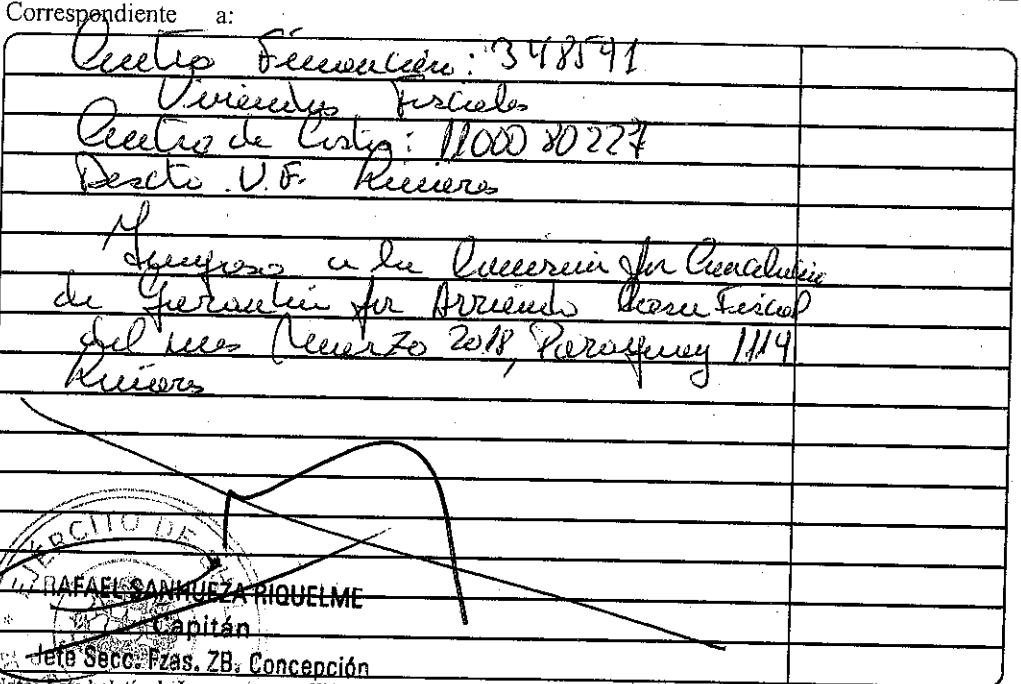 Correspondiente a:
Centro Financiero: 348541
Viviendas Fiscales
Centro de Costo: 1100080227
Descto. V.F.
Ingreso a la por Cancelación
de Garantía por Arriendo Casa Fiscal
del mes Marzo 2018, Paraguay 1114
EJERCITO DE
RAFAEL SANHUEZA RIQUELME
Capitán
Jefe Secc. Fzas. ZB. Concepción